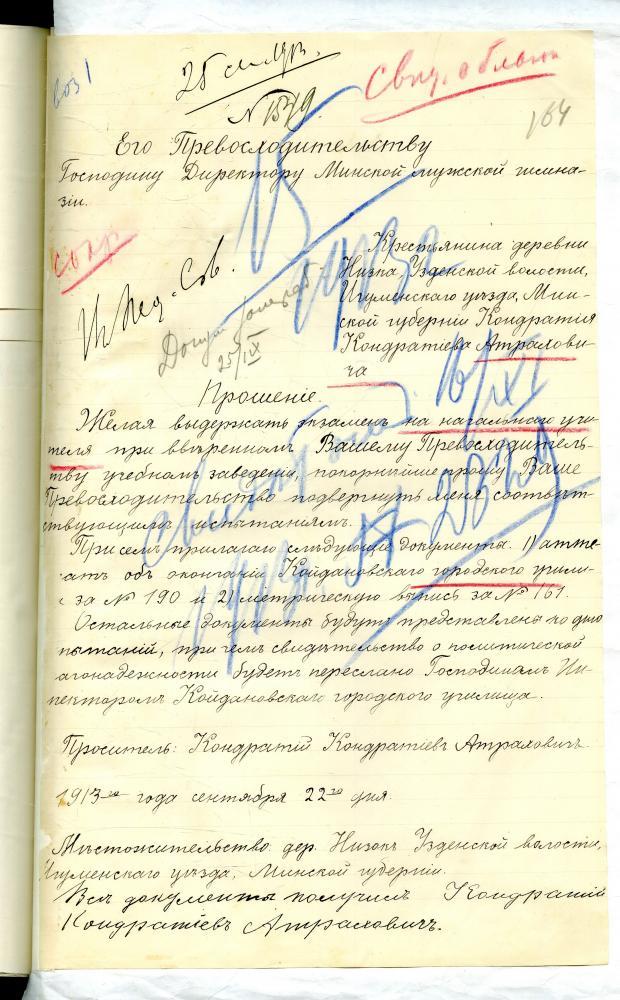 25 сентр.
N 1579.
164
Его Превосходительству
Господину Директору Минской мужской гимна-
зіи.
Крестьянина деревни
Низка, Узденской волости,
Игуменскаго уѣзда, Мин-
ской губерніи Кондратія
Кондратіева Атрахови-
ча
25/IX
Прошеніе.
Желая выдержать экзаменъ на начальнаго учи-
теля при ввѣренномъ Вашему Превосходитель-
ству учебномъ заведеніи, покорнѣйше прошу Ваше
Превосходительство подвергнуть меня соотвѣт-
ствующимъ испытаніямъ.
При семъ прилагаю слѣдующіе документы: 1) атте-
атъ объ окончаніи Койдановскаго городского учили-
за № 190 и 2) метрическую выпись за № 161.
Остальные документы будутъ представлены ко дню
пытаній, при чемъ свидѣтельство о политической
агонадежности будетъ переслано Господиномъ Ин-
пекторомъ Койдановскаго городского училища.
Проситель: Кондратій Кондратіевъ Атраховичъ.
1913-го года сентября 22го дня.
Мѣстожительство: дер. Низокъ Узденской волости,
Игуменскаго уѣзда, Минской губерніи.
Всѣ документы получилъ Кондратій
Кондратіевъ Атраховичъ.